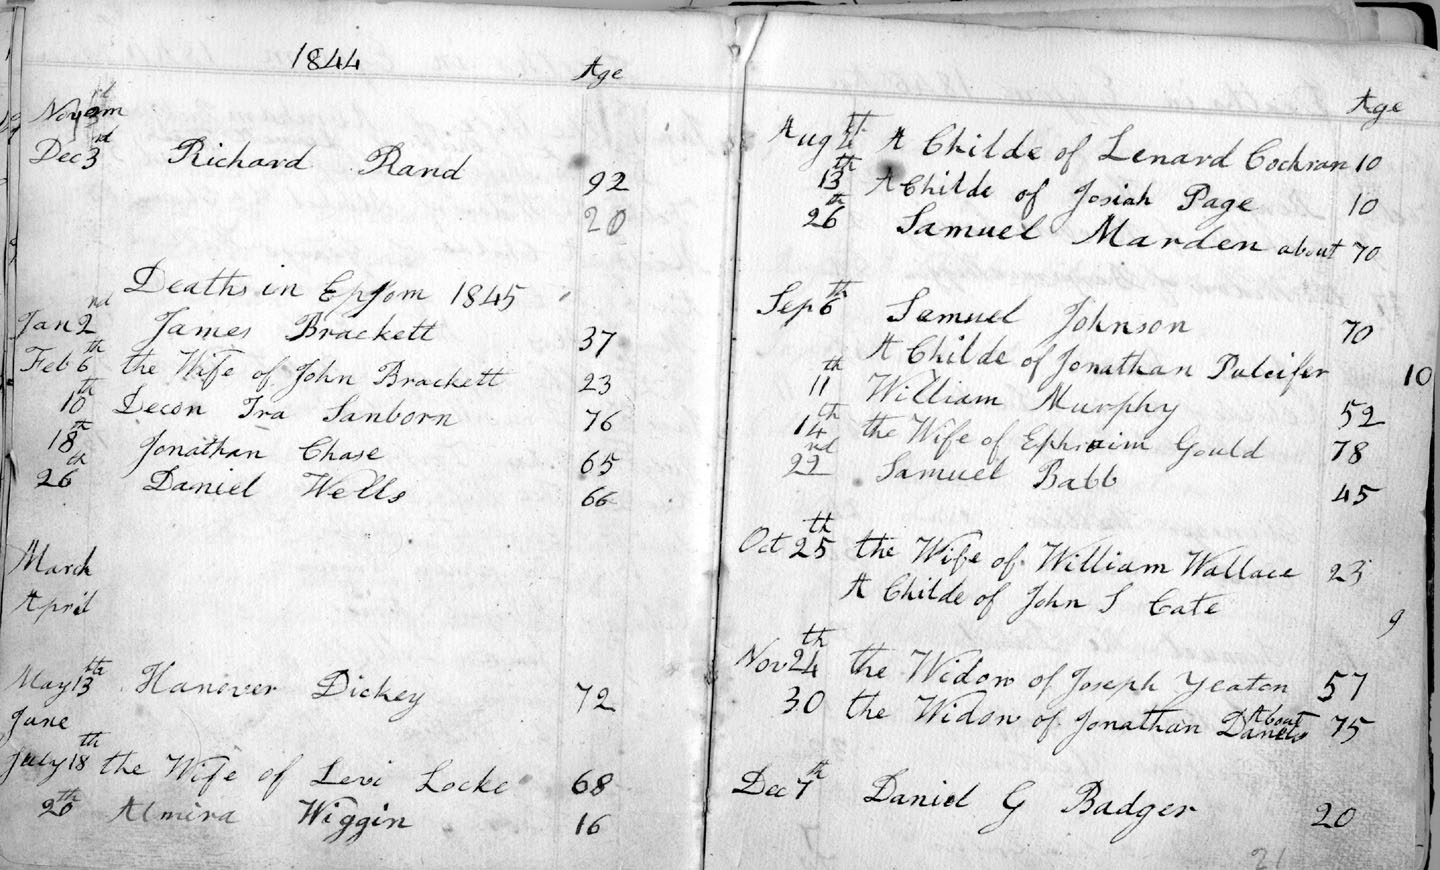 1844
Age
Novem
Dec 3rd Richard Rand 92
20
Deaths in Epsom 1845
Jan 2nd James Brackett 37
Feb 6th the Wife of John Brackett 23
10th Decon Ira Sanborn 76
18th Jonathan Chase 65
26th Daniel Wells 66
March
April
May 13th Hanover Dickey 72
June
July 18th the Wife of Levi Locke 68
20th Almira Wiggin 16
Age
Aug A Childe of Lenard Cochran 10
13th A Childe of Josiah Page 10
26th Samuel Marden about 70
Sep 6th Samuel Johnson 70
A Childe of Jonathan Pulcifer 10
11th William Murphy 52
14th the Wife of Ephraim Gould 78
22nd Samuel Babb 45
Oct 25th the Wife of William Wallace 23
A Childe of John S Cate 9
Nov 24th the Widow of Joseph Yeaton 57
30 the Widow of Jonathan About 75
Dec 7th Daniel G Badger 20
21